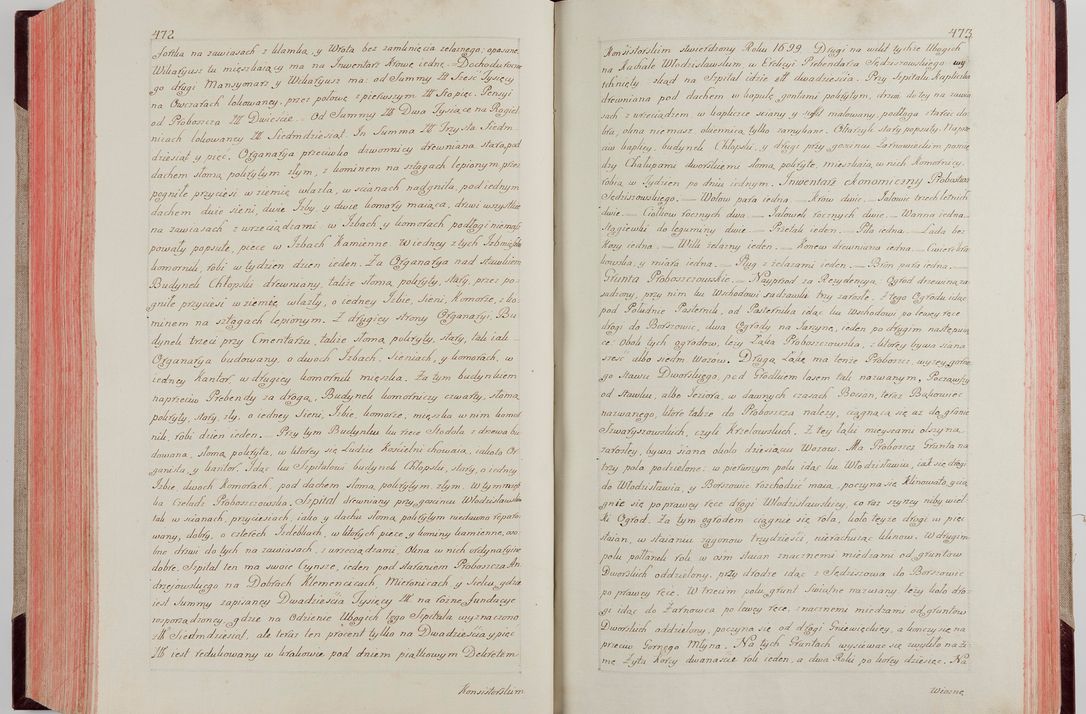 472
Fortka na zawiasach z klamką, y Wrota bez zamknięcia żelaznego; opasane
Wikaryusz tu mieszkaiący ma na Inwentarz krowę iedną. Dochodu roczne
go drugi Mansyonarz y Wikaryusz ma: od Summy Zł Sześć Tysięcy
na Owczarach lokowaney, przez połowę z pierwszym Zł Stopięć. Pensyi
od Proboszcza Zł Dwieście. Od Summy Zł Dwa Tysiące na Rogież
nicach lokowaney Zł Siedmdziesiąt. In Summa Zł Trzysta Siedm
dziesiąt y pięć. Organarya przeciwko dzwonnicy drewniana stara, pod
dachem słomą pokrytym złym, z kominem na szlagach lepionym, przez
pogniłe przyciesi w ziemię wlazła, w ścianach nadgniła, pod iednym
dachem dwie sieni, dwie Izby, y dwie komory maiąca, drzwi wszystkie
na zawiasach z wrzeciądzami. w Izbach y komorach podłogi niemasz,
powały popsute, piece w Izbach Kamienne. W iedney z tych Izb mieszka
komornik, robi w tydzień dzień ieden. Za Organaryą nad stawkiem
Budynek Chłopski drewniany, także słomą pokryty, stary, przez po-
gniłe przyciesi w ziemię wlazły, o iedney Izbie, Sieni, Komorze, z ko-
minem na szlagach lepionym. Z drugiey strony Organaryi, Bu
dynek trzeci przy Cmentarzu, także słomą pokryty, stary, tak iak
Organarya budowany, o dwoch Izbach, Sieniach, y komorach, w
iedney Kantor, w drugiey komornik mieszka. Za tym budynkiem
naprzeciw Prebendy za drogą, Budynek komorniczy czwarty, słomą
pokryty, stary, zły, o iedney Sieni, Izbie, komorze, mieszka w nim komor
nik, robi dzień ieden. Przy tym Budynku ku rzece Stodoła z drzewa bu
dowana, słomą pokryta, w ktorey się Ludzie Kościelni chowaią, iakoto Or
ganista, y kantor. Idąc ku Szpitalowi budynek Chłopski, stary, o iedney
Izbie, dwoch Komorach, pod dachem słomą pokrytym, złym. W tym miesz
ka Czeladź Proboszczowska. Szpital drewniany przy gościncu Włodzisławskim
tak w ścianach, przyciesiach, iako y dachu słomą pokrytym niedawno reparo
wany, dobry, o czterech Izdebkach, w ktorych piece, y kominy kamienne, oso
bne drzwi do tych na zawiasach, z wrzeciądzami, Okna w nich ordynaryine
dobre. Szpital ten ma swoie Czynsze, ieden pod staraniem Proboszcza An
drzejowskiego na Dobrach Klemencicach Mieronicach, y Sielcu, gdzie
iest Summy zapisaney Dwadzieścia Tysięcy Zł na rożne fundacye
rosporządzoney, gdzie na Odzienie Ubogich tego Szpitala wyznaczono
Zł Siedmdziesiąt, ale teraz ten procent tylko na Dwadzieścia y pięć
Zł iest redukowany w krakowie pod dniem piątkowym Dekretem
Konsistorskim
473
Konsistorskim stwierdzony Roku 1699. Drugi na wikt tychże Ubogich
na Kachale Włodzisławskim, w Erekcyi Prebendarza Sędziszowskiego wy
tchnięty, skąd na Szpital idzie Zł dwadzieścia. Przy Szpitalu Kapliczka
drewniana pod dachem w kopułę gontami pokrytym, drzwi do tey na zawia
sach z wrzeciądzem, w kapliczce ściany, y sufit malowany, podłoga z tarcic do
bra, okna niemasz okiennicą tylko zamykane. Ołtarzyk stary popsuty. Naprze
ciw kaplicy, budynek Chłopski, y drugi przy gościncu Żarnowieckim pomię
dzy Chałupami dworskiemi słomą pokryte, mieszkaią w nich Komornicy,
robią w Tydzień po dniu iednym. Inwentarz Ekonomiczny Proboszcza
Sędziszowskiego. — Wołow para iedna — Krow dwie. — Jałowic trzech letnich
dwie. — Ciołkow rocznych dwa. — Jałowek rocznych dwie. — Wanna iedna.
Stągiewki do leguminy dwie — Przetak ieden. — Piła iedna. — Lada bez
kosy iedna. — Wilk żelazny ieden. — Konew drewniana iedna. — Cwierć kra
kowska, y miara iedna. — Pług z żelazami ieden. — Bron para iedna. —
Grunta Proboszczowskie. — Nayprzod za Rezydencyą Ogrod drzewina za
sadzony, przy nim ku Wschodowi sadzawki trzy zarosłe. Z tego Ogrodu idąc
pod Południe Pasternik, od Pasternika idąc ku Wschodowi po lewey ręce
drogi do Borszowic, dwa Ogrody na Jarzynę, ieden po drugim następuią
ce. Obok tych ogrodow leży Łąka Proboszczowska, z ktorey bywa siana
sześć albo siedm Wozow. Drugą Łąkę ma tenże Proboszcz, wyżey gorne
go Stawu Dworskiego, pod Grodkiem lasem tak nazwanym. Począwszy
od Stawku, albo Jeziora, w dawnych czasach Bocian, teraz Bukowiec
nazwanego, ktore także do Proboszcza należy, ciągnącą się aż do granic
Szwaryszowskich, czyli Krzelowskich. Z tey łąki mieyscami olszyną
zarosłey, bywa siana około dziesiąciu Wozow. Ma Proboszcz Grunta na
trzy pola podzielone: w pierwszym polu idąc ku Włodzisławiu, iak się drogi
do Włodzisławia, y Borszowic rozchodzić maią, poczyna się klinowato, y cią
gnie się poprawey ręce drogi Włodzisławskiey, co raz szyrzey niby wiel
ki Ogrod. Za tym ogrodem ciągnie się rola, koło teyże drogi w pięć
staian, w staianiu zagonow trzydzieści, nierachuiąc klinow. W drugim
polu połłanek roli w ośm staian znacznemi miedzami od gruntow
Dworskich oddzielony, przy drodze idąc z Sędziszowa do Borszowic
po prawey ręce. W trzecim polu grunt Świątne nazwany, leży koło dro
gi idąc do Żarnowca po lewey ręce, znacznemi miedzami od gruntow
Dworskich oddzielony, poczyna się od drogi Gniewięckiey, a kończy się na
przeciw Gornego Młyna. Na tych Gruntach wysiewać się zwykło na Zi
mę Żyta korcy dwanaście roku ieden, a dwa Roku po korcy dziesięć. Na
Wiosnę